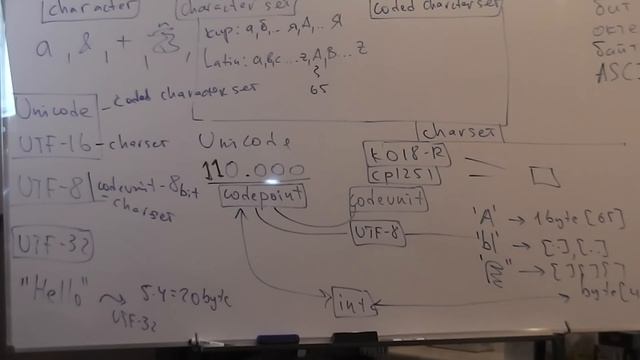 character
character set
coded character set
бит
окте
байт
ASCI
а, &, +,
кир: а, б, .. я, А, .. Я
Latin: a, b, c ... z, A, B ... Z
65
Unicode - coded character set
UTF-16 - charset
UTF-8 | codeunit - 8 bit
charset
UTF-32
"Hello" → 5·4=20 byte
UTF-32
Unicode
110.000
codepoint
charset
KOI8-R
CP1251
codeunit
UTF-8
int
'A' → 1 byte [65]
'Ы' → [.], [..]
→ [ ] [ ] [ ] [ ]
byte[4